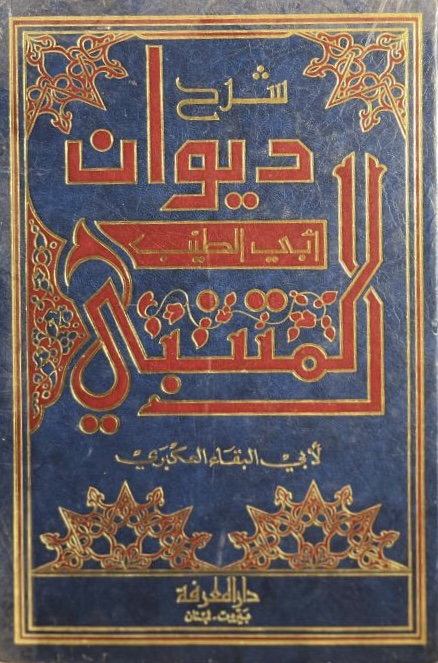 شرح
ديوان
أبي الطيب
المتنبي
لأبي البقاء العكبري
دار المعرفة
بيروت - لبنان